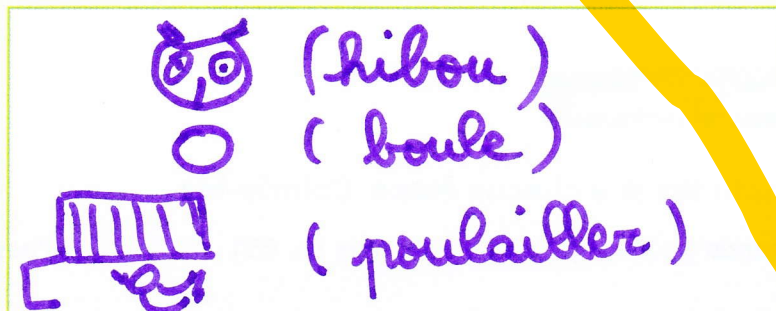 (hibou)
(boule)
(poulailler)